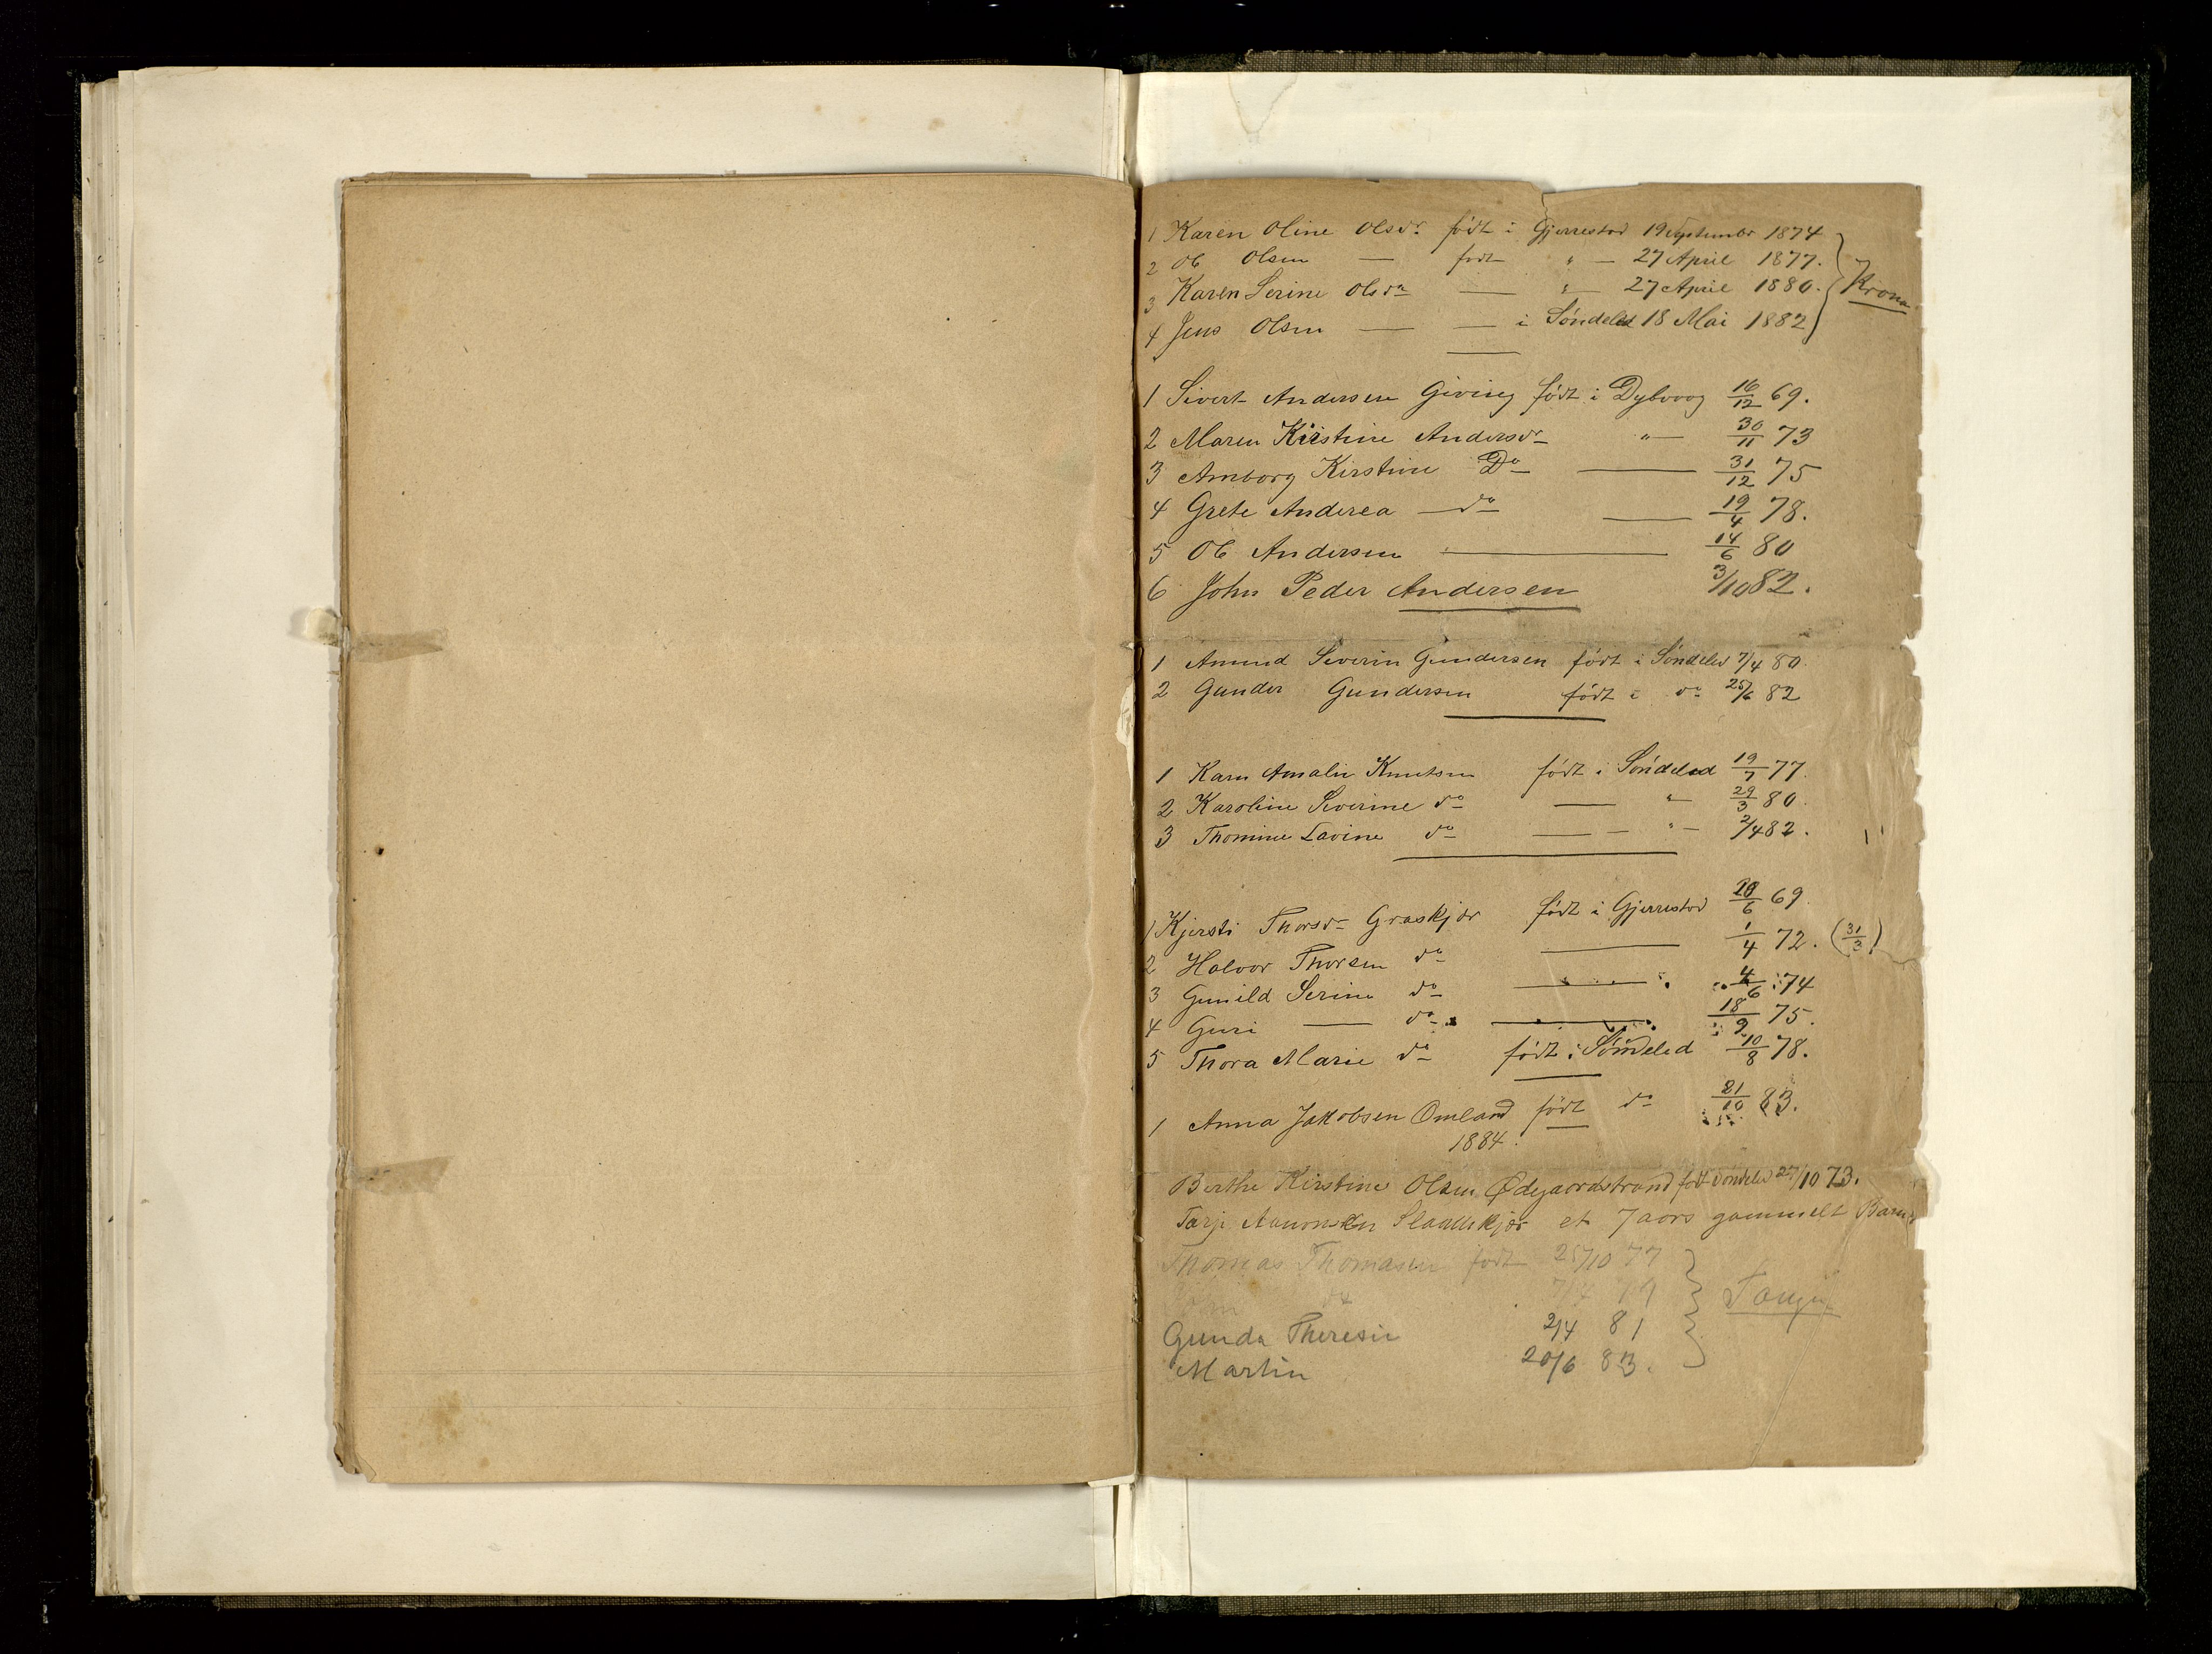 1 Karen Oline Olsdr. født i Gjerrestad 19 Septembr 1874
2 Ole Olsen — født " — 27 April 1877.
3 Karen Serine Olsdr — " — 27 April 1880. } Krona
4 Jens Olsen — — i Søndeled 18 Mai 1882
1 Sivert Andersen Giving født i Dybvaag 16/12 69.
2 Maren Kirstine Andersdr " — 30/11 73
3 Amborg Kirstine Do — 31/12 75
4 Grete Anderea — do — 19/4 78.
5 Ole Andersen — 14/6 80
6 John Peder Andersen 3/10 82.
1 Amund Severin Gundersen født i Søndeled 7/4 80.
2 Gunder Gundersen født i do 25/6 82
1 Karen Amalie Knutsen født i Søndeled 19/7 77.
2 Karoline Severine do — " — 29/3 80.
3 Thomine Lavine do — — " — 2/4 82.
1 Kjersti Thorsdr Graskjær født i Gjerrestad 20/6 69.
2 Halvor Thorsen do — 1/4 72. (31/3)
3 Gunild Serine do — 4/6 74
4 Guri — do — 18/9 75.
5 Thora Marie do født i Søndeled 10/8 78.
1 Anna Jakobsen Omland født do 21/10 83.
1884.
Berthe Kirstine Olsen Ødegaardstrand født Søndeled 27/10 73.
Tarje Aanonsen et 7 aars gammelt Barn
Thomas Thomasen født 25/10 77
John do 7/4 79
Gunda Theresie 2/4 81
Martin 20/6 83.